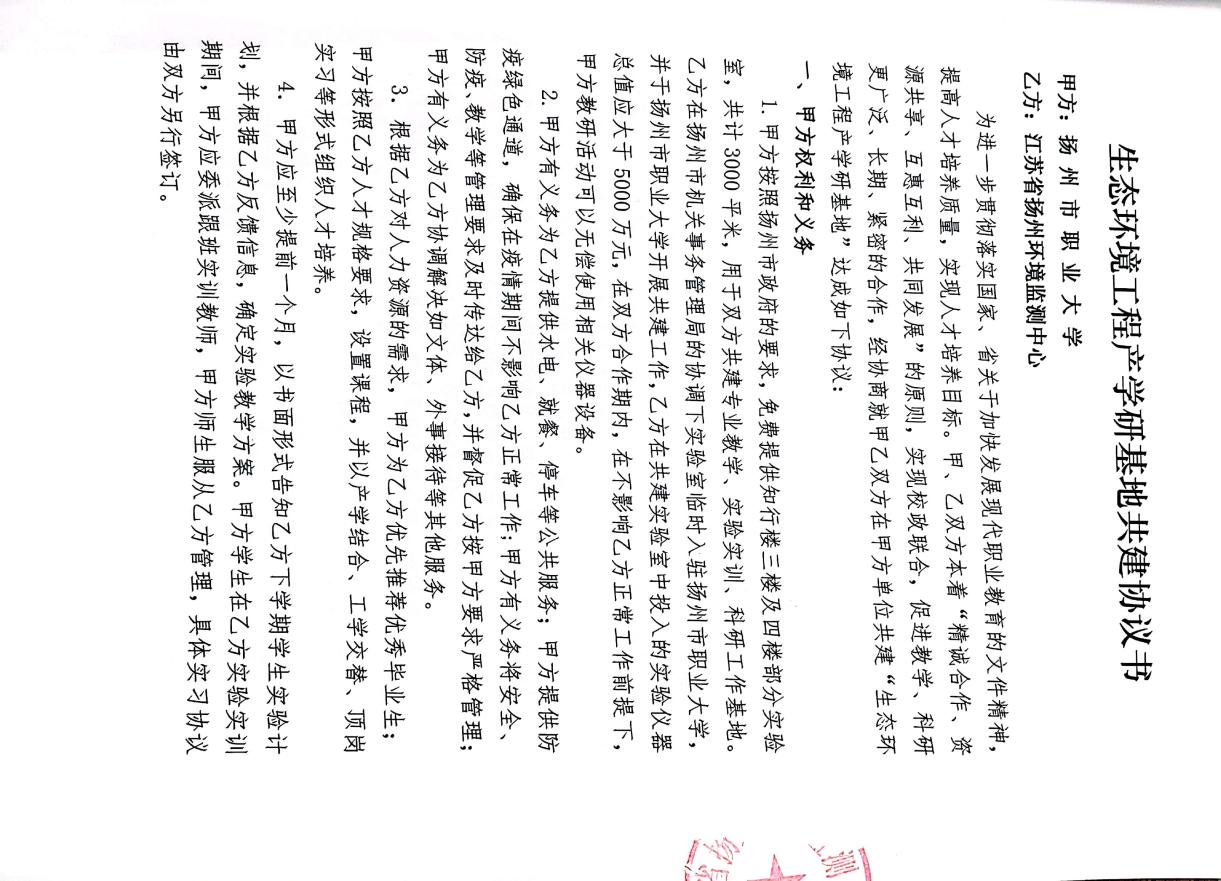 生态环境工程产学研基地共建协议书
甲方：扬州市职业大学
乙方：江苏省扬州环境监测中心
为进一步贯彻落实国家、省关于加快发展现代职业教育的文件精神，
提高人才培养质量，实现人才培养目标。甲、乙双方本着“精诚合作、资
源共享、互惠互利、共同发展”的原则，实现校政联合，促进教学、科研
更广泛、长期、紧密的合作，经协商就甲乙双方在甲方单位共建“生态环
境工程产学研基地”达成如下协议：
一、甲方权利和义务
1. 甲方按照扬州市政府的要求，免费提供知行楼三楼及四楼部分实验
室，共计3000平米，用于双方共建专业教学、实验实训、科研工作基地。
乙方在扬州市机关事务管理局的协调下实验室临时入驻扬州市职业大学，
并于扬州市职业大学开展共建工作，乙方在共建实验室中投入的实验仪器
总值应大于5000万元，在双方合作期内，在不影响乙方正常工作前提下，
甲方教研活动可以无偿使用相关仪器设备。
2. 甲方有义务为乙方提供水电、就餐、停车等公共服务；甲方提供防
疫绿色通道，确保在疫情期间不影响乙方正常工作；甲方有义务将安全、
防疫、教学等管理要求及时传达给乙方，并督促乙方按甲方要求严格管理；
甲方有义务为乙方协调解决如文体、外事接待等其他服务。
3. 根据乙方对人力资源的需求，甲方为乙方优先推荐优秀毕业生；
甲方按照乙方人才规格要求，设置课程，并以产学结合、工学交替、顶岗
实习等形式组织人才培养。
4. 甲方应至少提前一个月，以书面形式告知乙方下学期学生实验计
划，并根据乙方反馈信息，确定实验教学方案。甲方学生在乙方实验实训
期间，甲方应委派跟班实训教师，甲方师生服从乙方管理，具体实习协议
由双方另行签订。
测